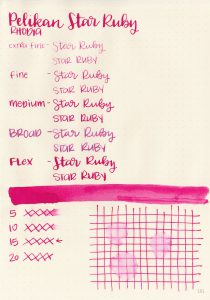 Pelikan Star Ruby
RHODIA
extra fine - Star Ruby
STAR RUBY
fine - Star Ruby
STAR RUBY
medium - Star Ruby
STAR RUBY
BROAD - Star Ruby
STAR RUBY
FLEX - Star Ruby
STAR RUBY
5 XXXX
10 XXXX
15 XXXX ←
20 XXXX